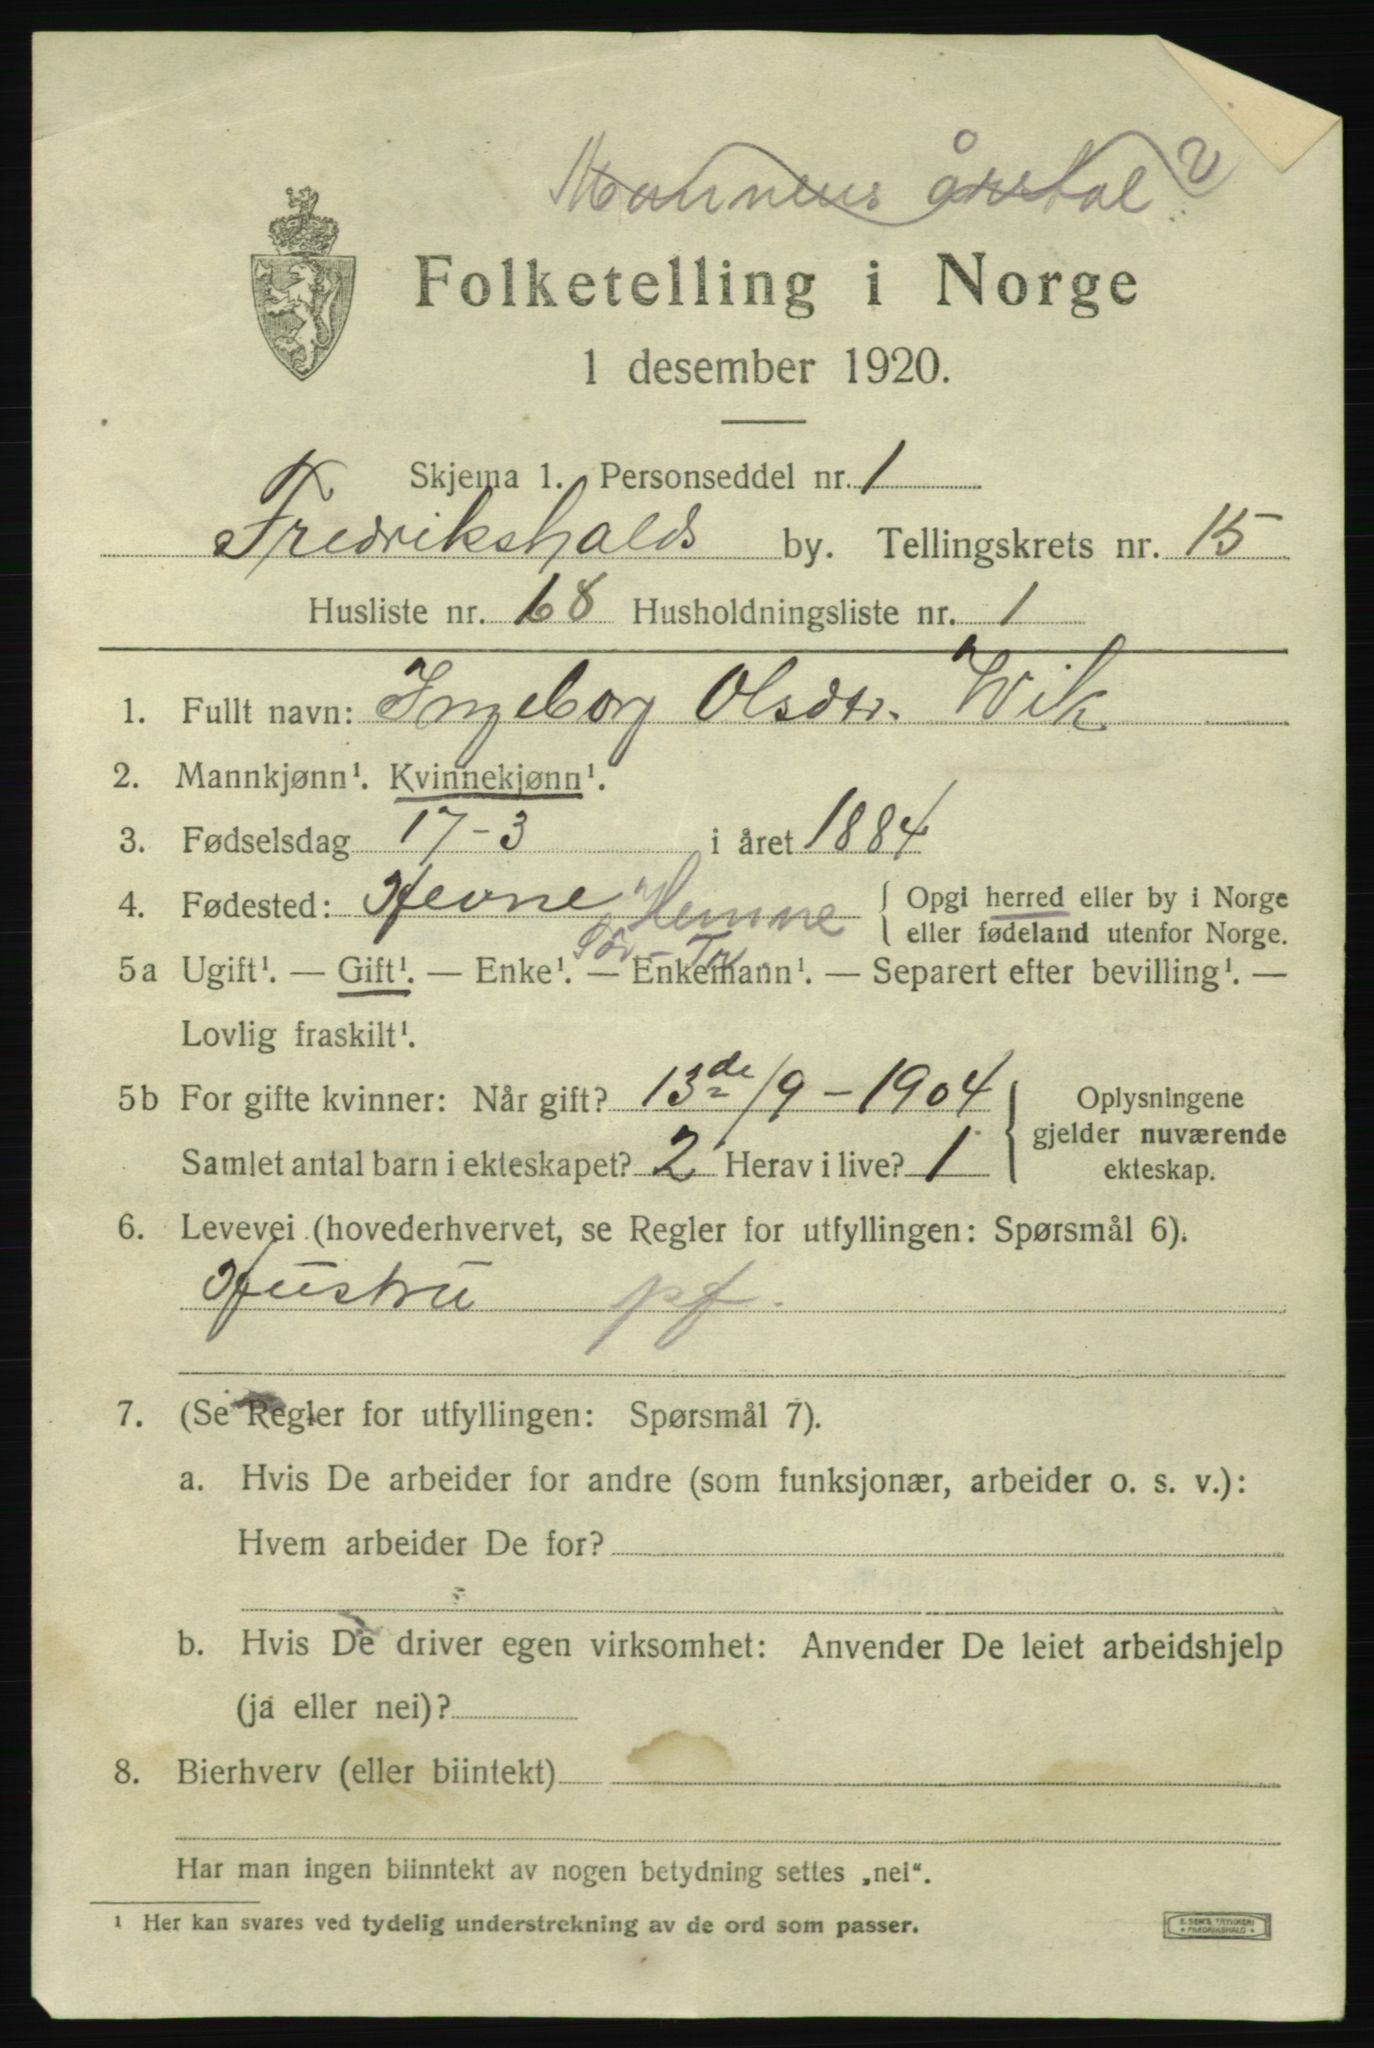 Mannens årstal?
Folketelling i Norge
1 desember 1920.
Skjema 1. Personseddel nr. 1
Fredrikshalds by. Tellingskrets nr. 15
Husliste nr. 68 Husholdningsliste nr. 1
1. Fullt navn: Ingeborg Olsdtr. Wik
2. Mannkjønn¹. Kvinnekjønn¹.
3. Fødselsdag 17-3 i året 1884
4. Fødested: Hevne Hemne { Opgi herred eller by i Norge
eller fødeland utenfor Norge.
Sör-Tr.
5a Ugift¹. — Gift¹. — Enke¹. — Enkemann¹. — Separert efter bevilling¹. —
Lovlig fraskilt¹.
5b For gifte kvinner: Når gift? 13de/9-1904 } Oplysningene
gjelder nuværende
Samlet antal barn i ekteskapet? 2 Herav i live? 1 ekteskap.
6. Levevei (hovederhvervet, se Regler for utfyllingen: Spørsmål 6).
Hustru pf.
7. (Se Regler for utfyllingen: Spørsmål 7).
a. Hvis De arbeider for andre (som funksjonær, arbeider o. s. v.):
Hvem arbeider De for?
b. Hvis De driver egen virksomhet: Anvender De leiet arbeidshjelp
(ja eller nei)?
8. Bierhverv (eller biintekt)
Har man ingen biinntekt av nogen betydning settes „nei“.
¹ Her kan svares ved tydelig understrekning av de ord som passer.